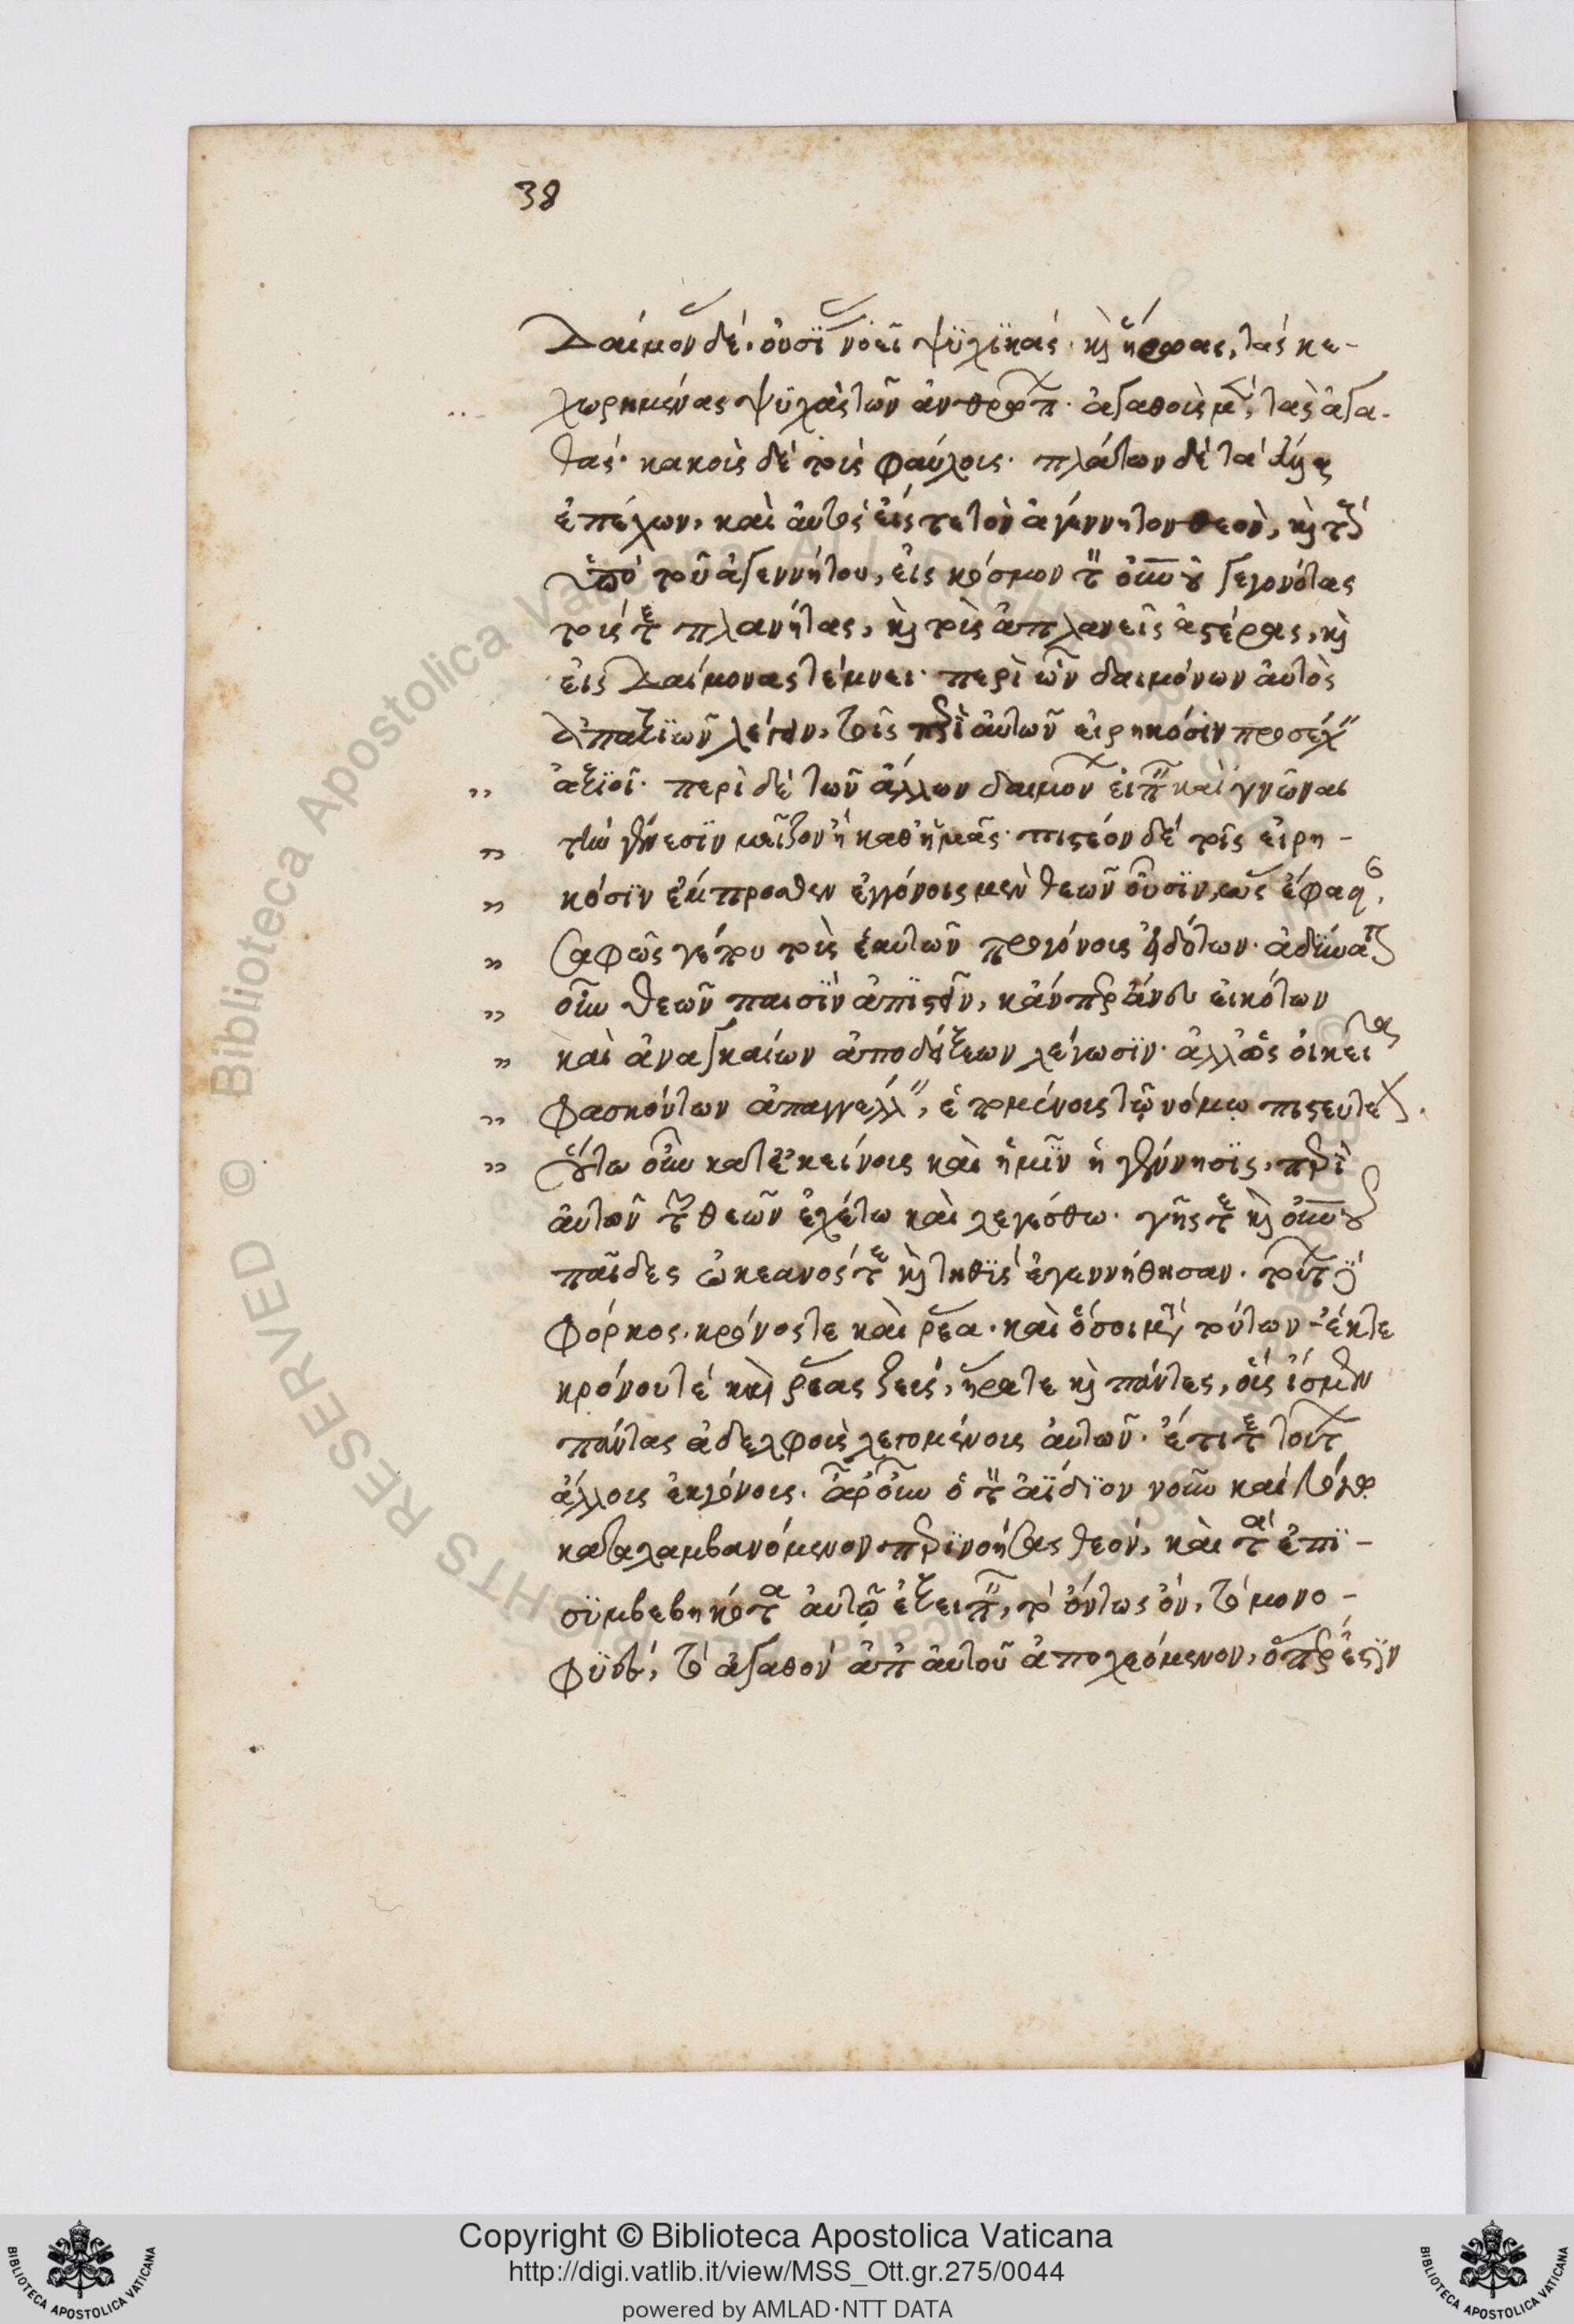 38
Δαίμονας δέ. οὐσίας νοεῖ ψυχικάς. καὶ ἥρωας, τάς κε-
χωρημένας ψυχὰς τῶν ἀνθρώπων. ἀγαθοὺς μέν, τὰς ἀγα-
θάς. κακοὺς δὲ τοὺς φαύλους. πλάτων δὲ τὰ
ἐπέχων, καὶ αὐτὸς εἴς τε τὸν ἀγέννητον θεόν, καὶ τοὺς
ὑπὸ τοῦ ἀγεννήτου, εἰς κόσμον τοῦ οὐρανοῦ γεγονότας
τούς τε πλανήτας, καὶ τοὺς ἀπλανεῖς ἀστέρας, καὶ
εἰς Δαίμονας τέμνει. περὶ ὧν δαιμόνων αὐτὸς
ἀπαξιῶν λέγειν, τοῖς περὶ αὐτῶν εἰρηκόσιν προσέχειν
„ ἀξιοῖ. περὶ δὲ τῶν ἄλλων δαιμόνων εἰπεῖν καὶ γνῶναι
„ τὴν γένεσιν μεῖζον ἢ καθ' ἡμᾶς. πιστέον δὲ τοῖς εἰρη-
„ κόσιν ἔμπροσθεν ἐγγόνοις μὲν θεῶν οὖσιν, ὡς ἔφασαν,
„ σαφῶς γέ που τοὺς ἑαυτῶν προγόνους εἰδότων. ἀδύνατον
„ οὖν θεῶν παισὶν ἀπιστεῖν, κἄνπερ ἄνευ εἰκότων
„ καὶ ἀναγκαίων ἀποδείξεων λέγωσιν. ἀλλ' ὡς οἰκεῖα
„ φασκόντων ἀπαγγέλλειν, ἑπομένοις τῷ νόμῳ πιστευτέον.
„ οὕτω οὖν κατ' ἐκείνους καὶ ἡμῖν ἡ γέννησις, περὶ
αὐτῶν τῶν θεῶν ἐχέτω καὶ λεγέσθω. γῆς τε καὶ οὐρανοῦ
παῖδες ὠκεανός τε καὶ τηθὺς ἐγεννήθησαν. τούτων δέ
φόρκος. κρόνος τε καὶ ῥέα. καὶ ὅσοι μετὰ τούτων. ἐκ τε
κρόνου τέ καὶ ῥέας ζεύς, ἥρα τε καὶ πάντες, οὓς ἴσμεν
πάντας ἀδελφοὺς λεγομένους αὐτῶν. ἔτι τε τούτων
ἄλλους ἐκγόνους. ἆρ' οὖν ὁ τὸν ἀΐδιον νοῦν καὶ λόγῳ
καταλαμβανόμενον περινοήσας θεόν, καὶ τὰ ἐπι-
συμβεβηκότα αὐτῷ ἐξειπεῖν, τὸ ὄντως ὄν, τὸ μονο-
φυές, τὸ ἀγαθόν ἀπ' αὐτοῦ ἀποχεόμενον, ὅπερ ἐστὶν
Copyright © Biblioteca Apostolica Vaticana
http://digi.vatlib.it/view/MSS_Ott.gr.275/0044
powered by AMLAD·NTT DATA